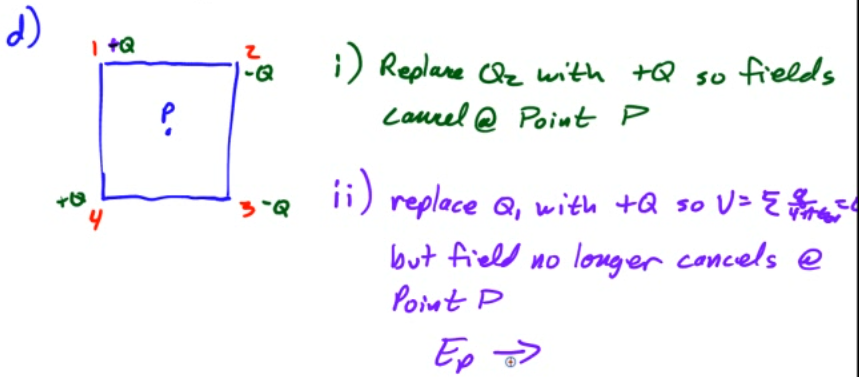 d)
1 +Q
2
-Q
P
+Q
4
3 -Q
i) Replace Q₂ with +Q so fields
cancel @ Point P
ii) replace Q₁ with +Q so V= Σ
but field no longer cancels @
Point P
Eₚ →